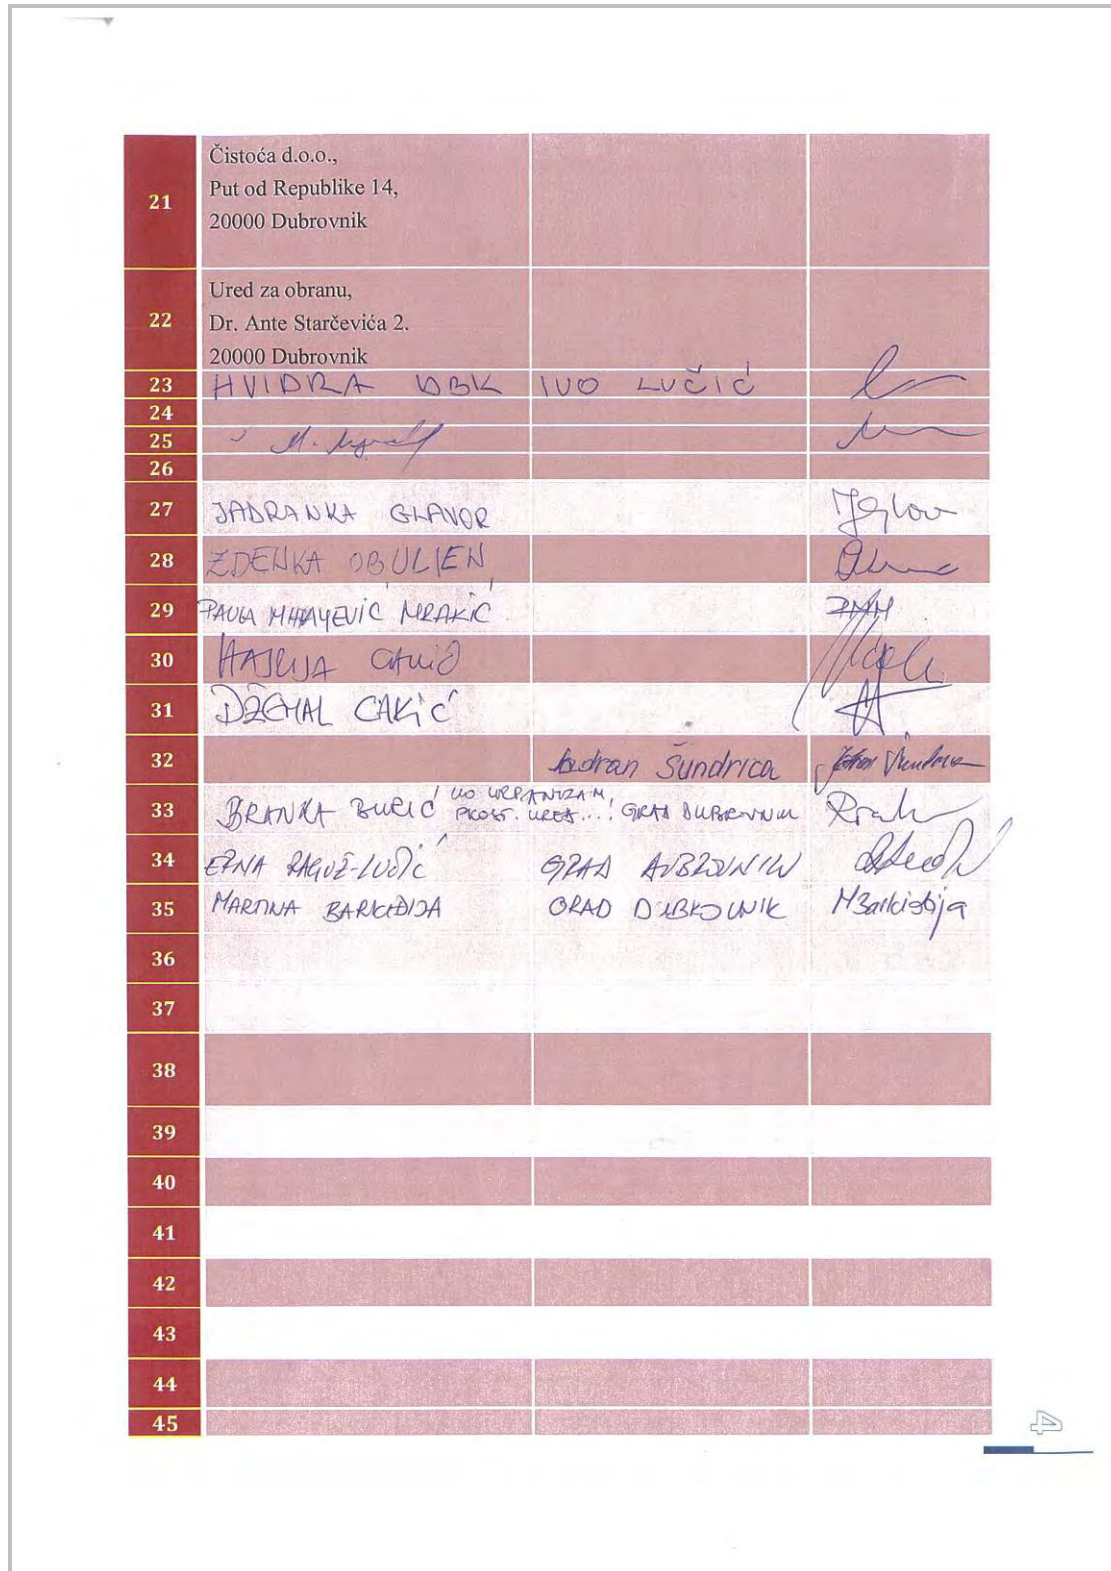 21
Čistoća d.o.o.,
Put od Republike 14,
20000 Dubrovnik
22
Ured za obranu,
Dr. Ante Starčevića 2.
20000 Dubrovnik
23 HVIDRA DBK IVO LUČIĆ
24
25 M.
26
27 JADRANKA GLAVOR
28 ZDENKA OBULJEN
29 PAULA MRAKIĆ
30
31 DŽEMAL CAKIĆ
32 Jadran Šundrica
33 BRANKA UO URBANIZAM, PROST. UREĐ... GRAD DUBROVNIK
34 EDNA RAGUŽ-LUČIĆ GRAD DUBROVNIK
35 MARTINA BARKIĐIJA GRAD DUBROVNIK MBarkiđija
36
37
38
39
40
41
42
43
44
45
4